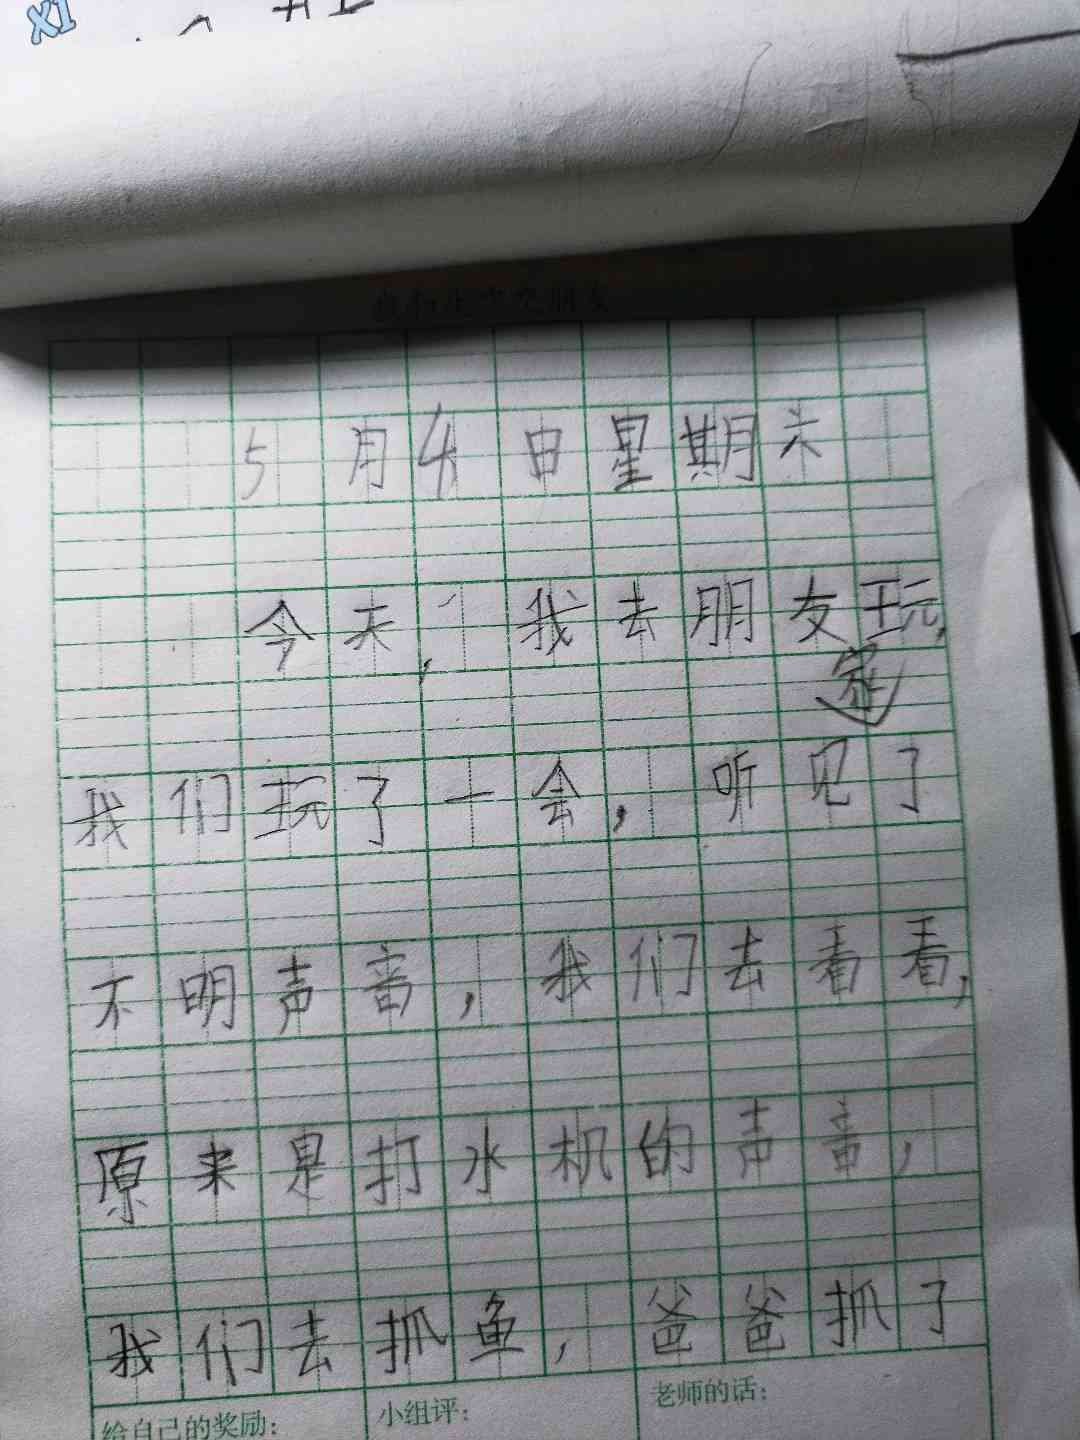 5月4日星期六
今天，我去朋友家玩，
我们玩了一会，听见了
不明声音，我们去看看，
原来是打水机的声音，
我们去抓鱼，爸爸抓了
给自己的奖励：
小组评：
老师的话：